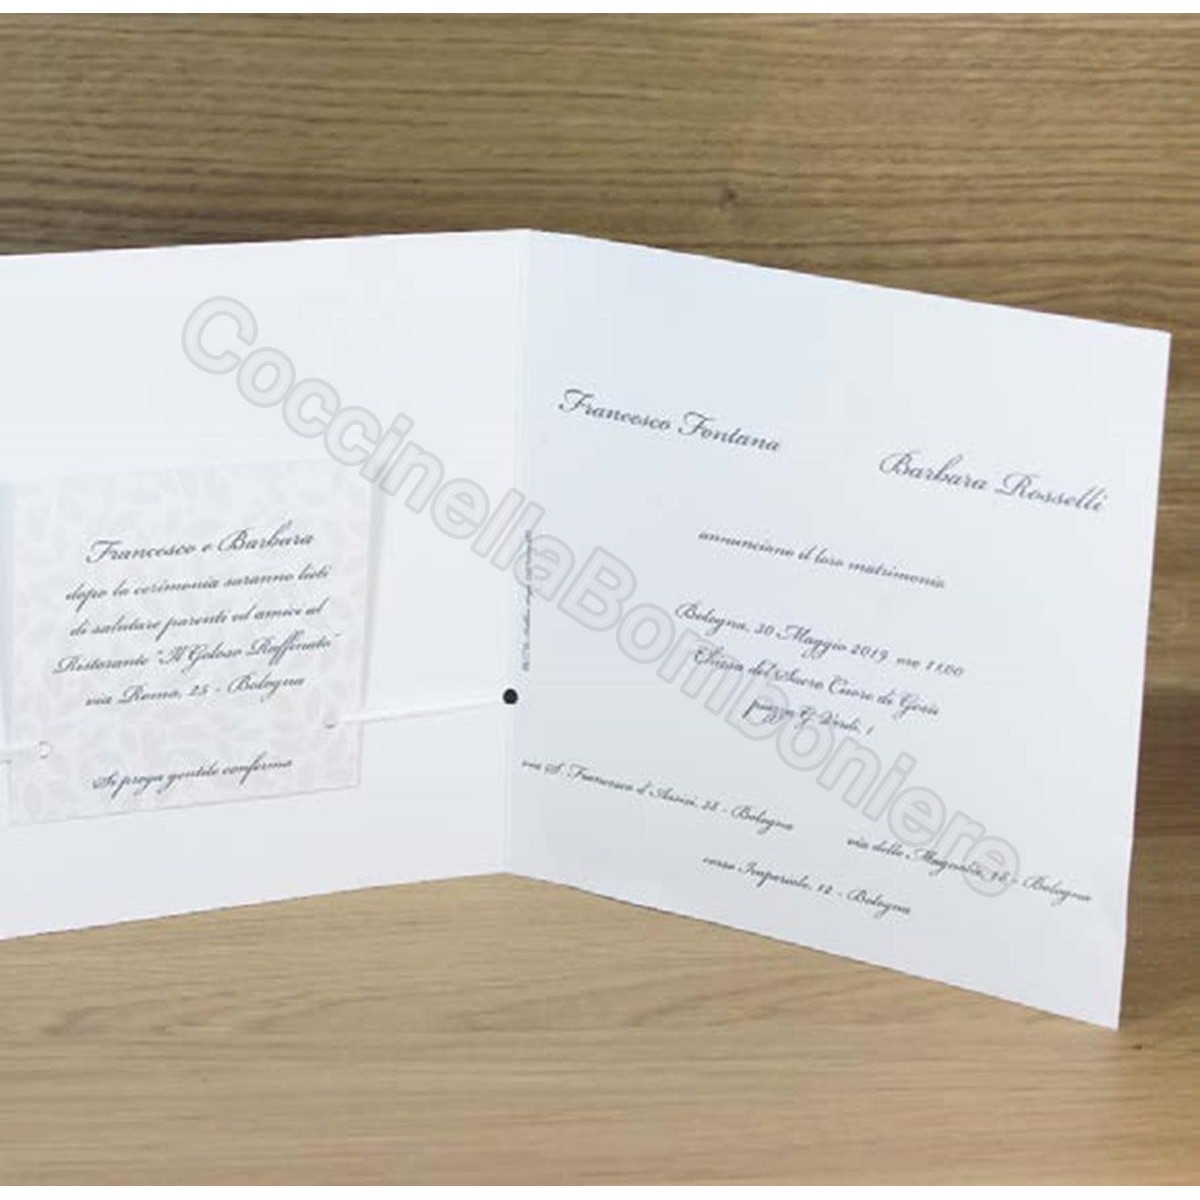 Francesco e Barbara
dopo la cerimonia saranno lieti
di salutare parenti ed amici al
Ristorante "Il Goloso Raffinato"
via Roma, 25 - Bologna
Si prega gentile conferma
Francesco Fontana
Barbara Rosselli
annunciano il loro matrimonio
Bologna, 30 Maggio 2019 ore 11.00
Chiesa del Sacro Cuore di Gesù
piazza G. Verdi, 1
via S. Francesco d'Assisi, 38 - Bologna
via delle Magnolie, 18 - Bologna
corso Imperiale, 12 - Bologna
CoccinellaBomboniere